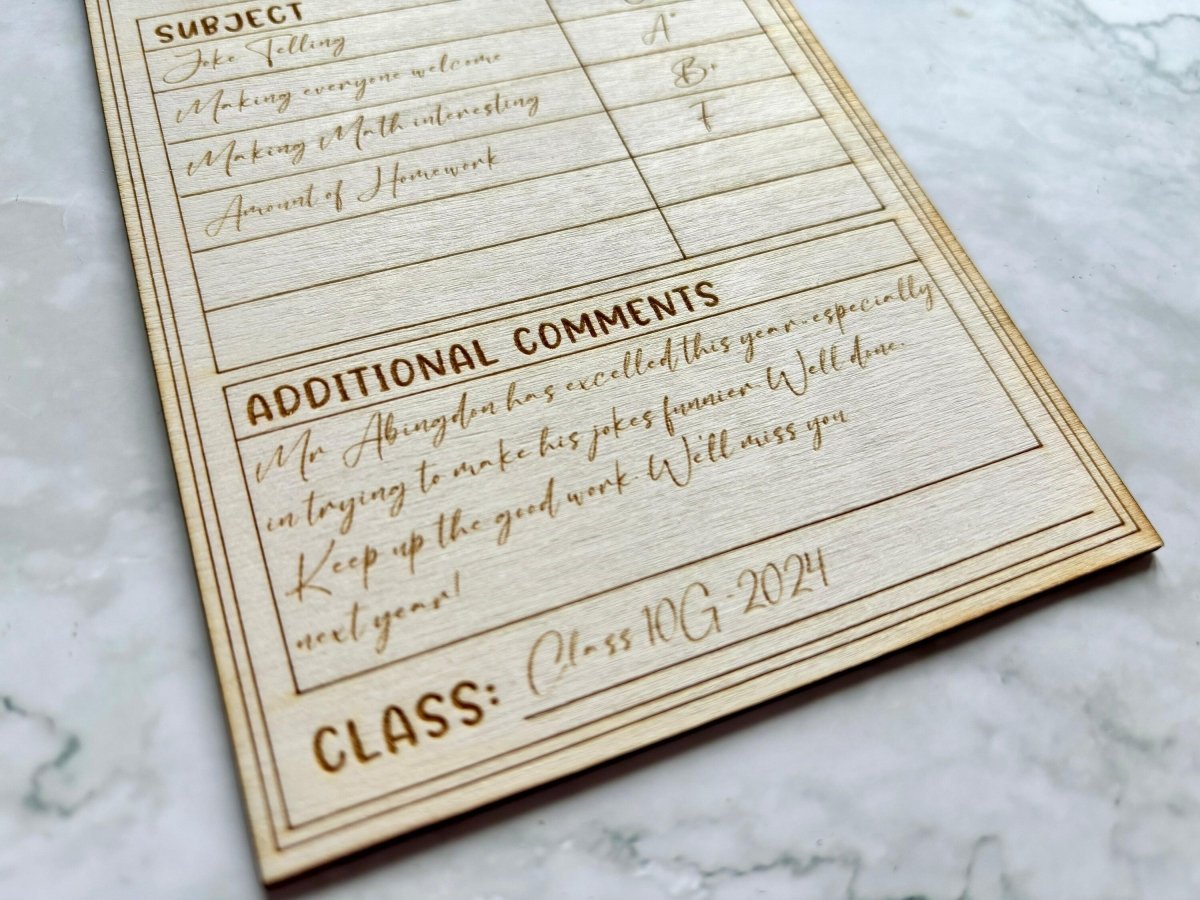 SUBJECT
Joke Telling
Making everyone welcome A+
Making Math interesting B+
Amount of Homework F
ADDITIONAL COMMENTS
Mr Abingdon has excelled this year-especially
in trying to make his jokes funnier. Well done.
Keep up the good work. We'll miss you
next year!
CLASS: Class 10G - 2024